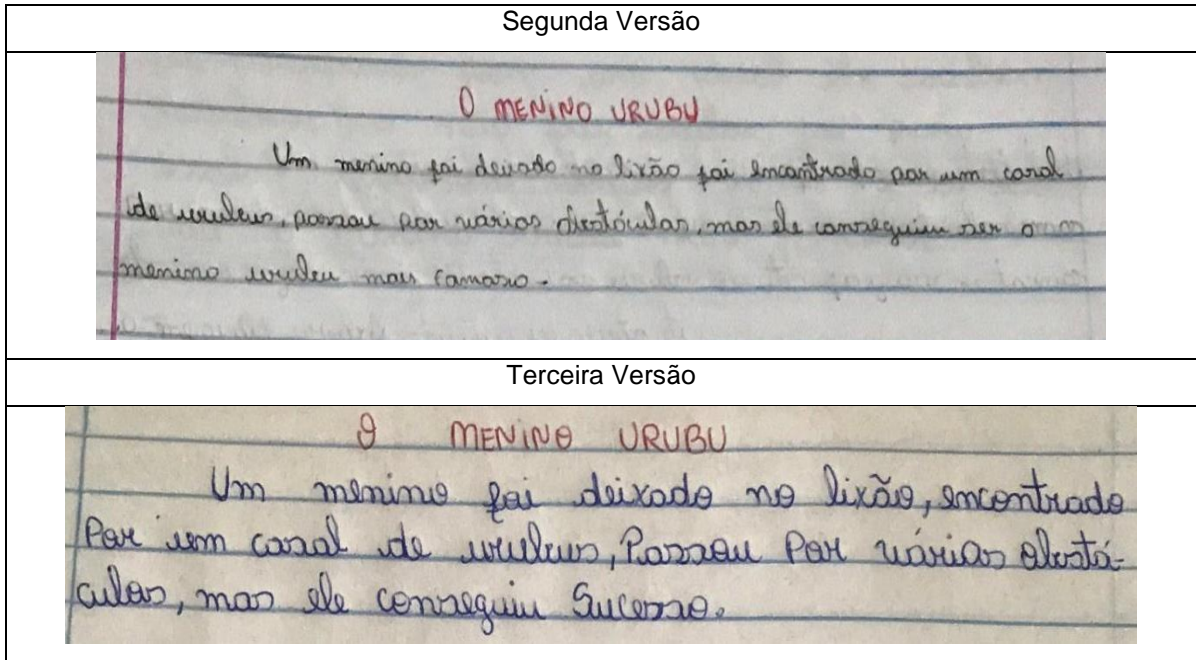 Segunda Versão
O MENINO URUBU
Um menino foi deixado no lixão foi encontrado por um casal
de urubus, passou por vários obstáculos, mas ele conseguiu ser o
menino urubu mais famoso.
Terceira Versão
O MENINO URUBU
Um menino foi deixado no lixão, encontrado
Por um casal de urubus, Passou Por vários obstá-
culos, mas ele conseguiu Sucesso.